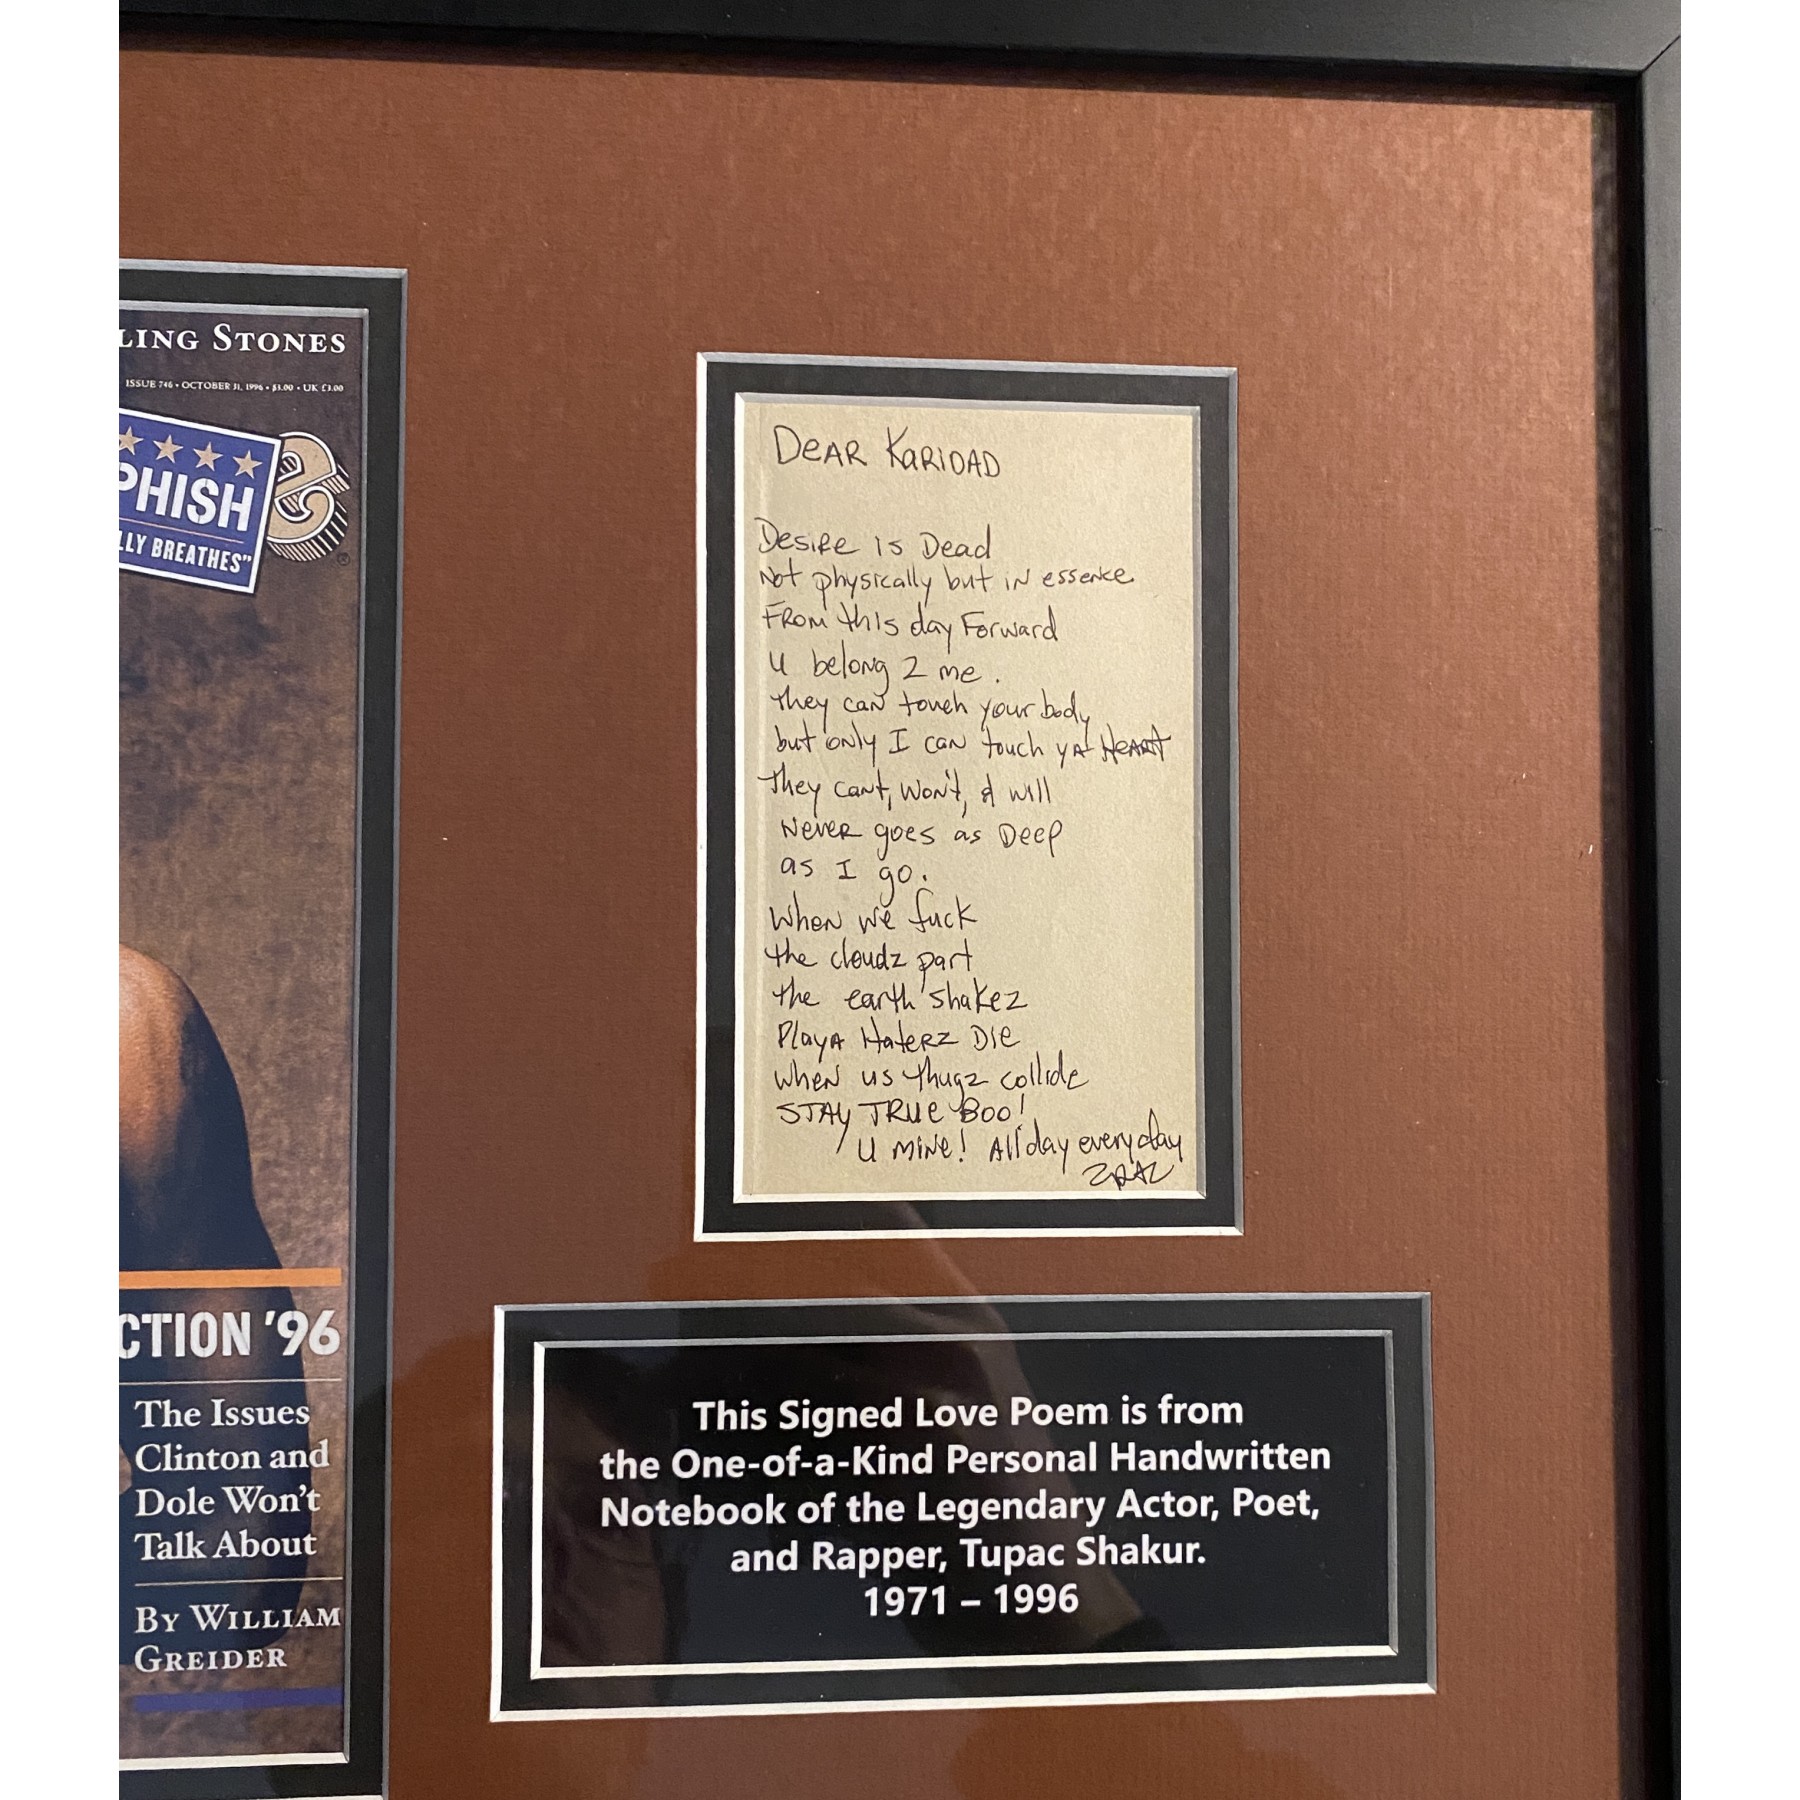 LING STONES
ISSUE 746 • OCTOBER 31, 1996 • $3.00 • UK £3.00
PHISH
LLY BREATHES"
e
CTION '96
The Issues
Clinton and
Dole Won't
Talk About
BY WILLIAM
GREIDER
DEAR KARIDAD
Desire is Dead
Not physically but in essence
From this day Forward
U belong 2 me.
they can touch your body
but only I can touch ya Heart
they cant, won't, & will
Never goes as Deep
as I go.
when we fuck
the cloudz part
the earth shakez
Playa Haterz Die
when us thugz collide
STAY TRUE BOO!
U MINE! All day everyday
This Signed Love Poem is from
the One-of-a-Kind Personal Handwritten
Notebook of the Legendary Actor, Poet,
and Rapper, Tupac Shakur.
1971 – 1996